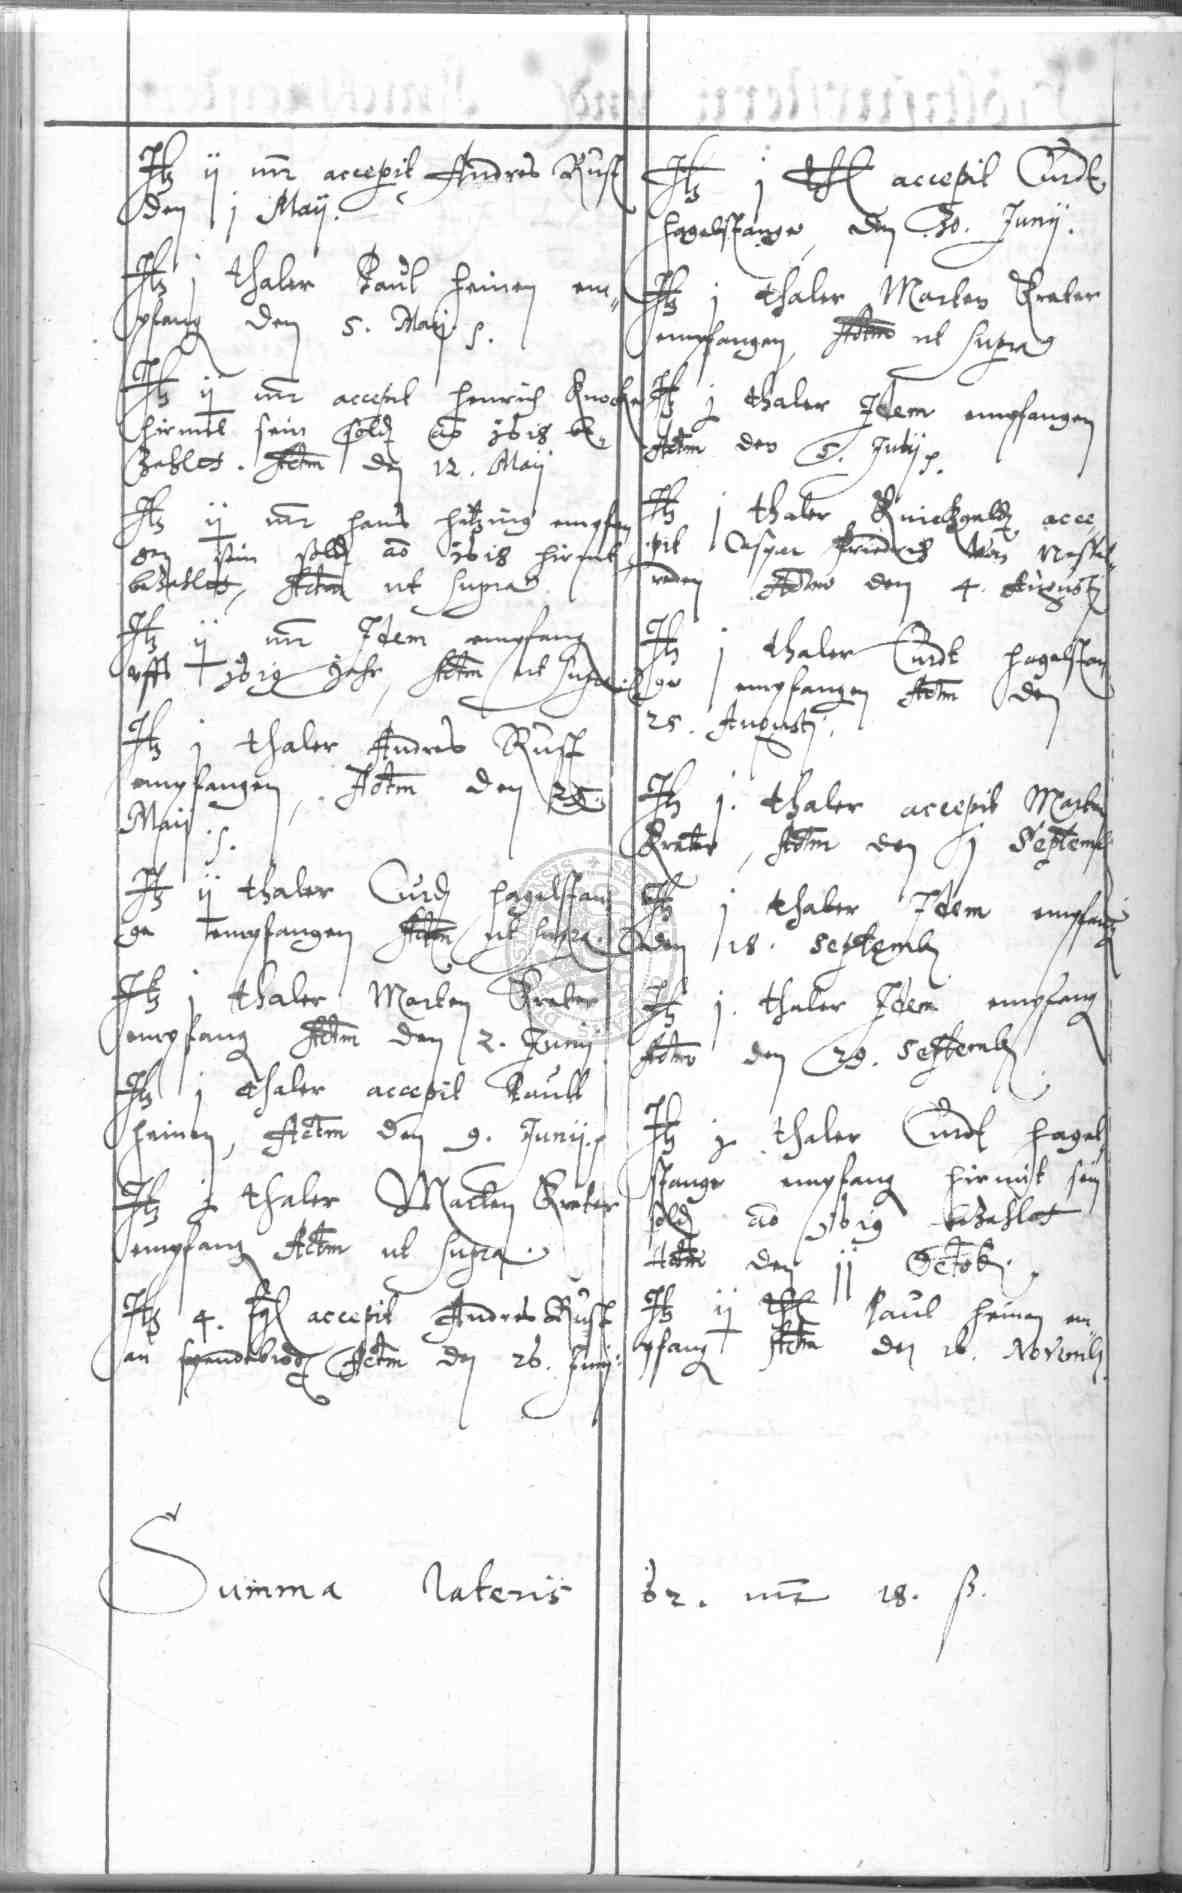 Itz ij mr accepit Andres Rust
den j Maij.
Itz j thaler Paul heinen em„
pfang den 5. Maij.
Itz ij mr accepit henrich Knocke
hirmit sein sold ao 1618 be„
zahlet. Actm den 12. Maij
Itz ij mr hans empfan
gen sein sold ao 1618 hirmit
bezahlet, Actm ut supra
Itz ij mr Idem empfang
uffs 1619 Jahr, Actm ut supra
Itz j thaler Andres Rust
empfangen, Actm den 25.
Maij.
Itz ij thaler Curd hagelstan
ge empfangen Actm ut supra.
Itz j thaler Marten Krater
empfang Actm den 2. Junij
Itz j thaler accepit Paull
heinen, Actm den 9. Junij.
Itz j thaler Marten Krater
empfang Actm ut supra.
Itz 4. accepit Andres Rust
an Actm den 26. Junij.
Itz j accepit Curdt
hagelstange, den 30. Junij.
Itz j thaler Marten Krater
empfangen, Actm ut supra
Itz j thaler Idem empfangen
Actm den 5. Julij
Itz j thaler acce„
pit Caspar Friedrich von
reden Actm den 4. Augustj
Itz j thaler Curdt hagelstan
ge empfangen Actm den
25. Augustj.
Itz j. thaler accepit Marten
Krater, Actm den j Septemb
Itz j thaler Idem empfang
den 18. Septemb
Itz j. thaler Idem empfang
Actm den 29. Septemb
Itz j thaler Curdt hagel
stange empfang hirmit sein
sold ao 1619 bezahlet
Actm den jj Octob.
Itz ij Paul heinen em
pfang Actm den 16. Novemb
Summa lateris 62. mr 18. ß.